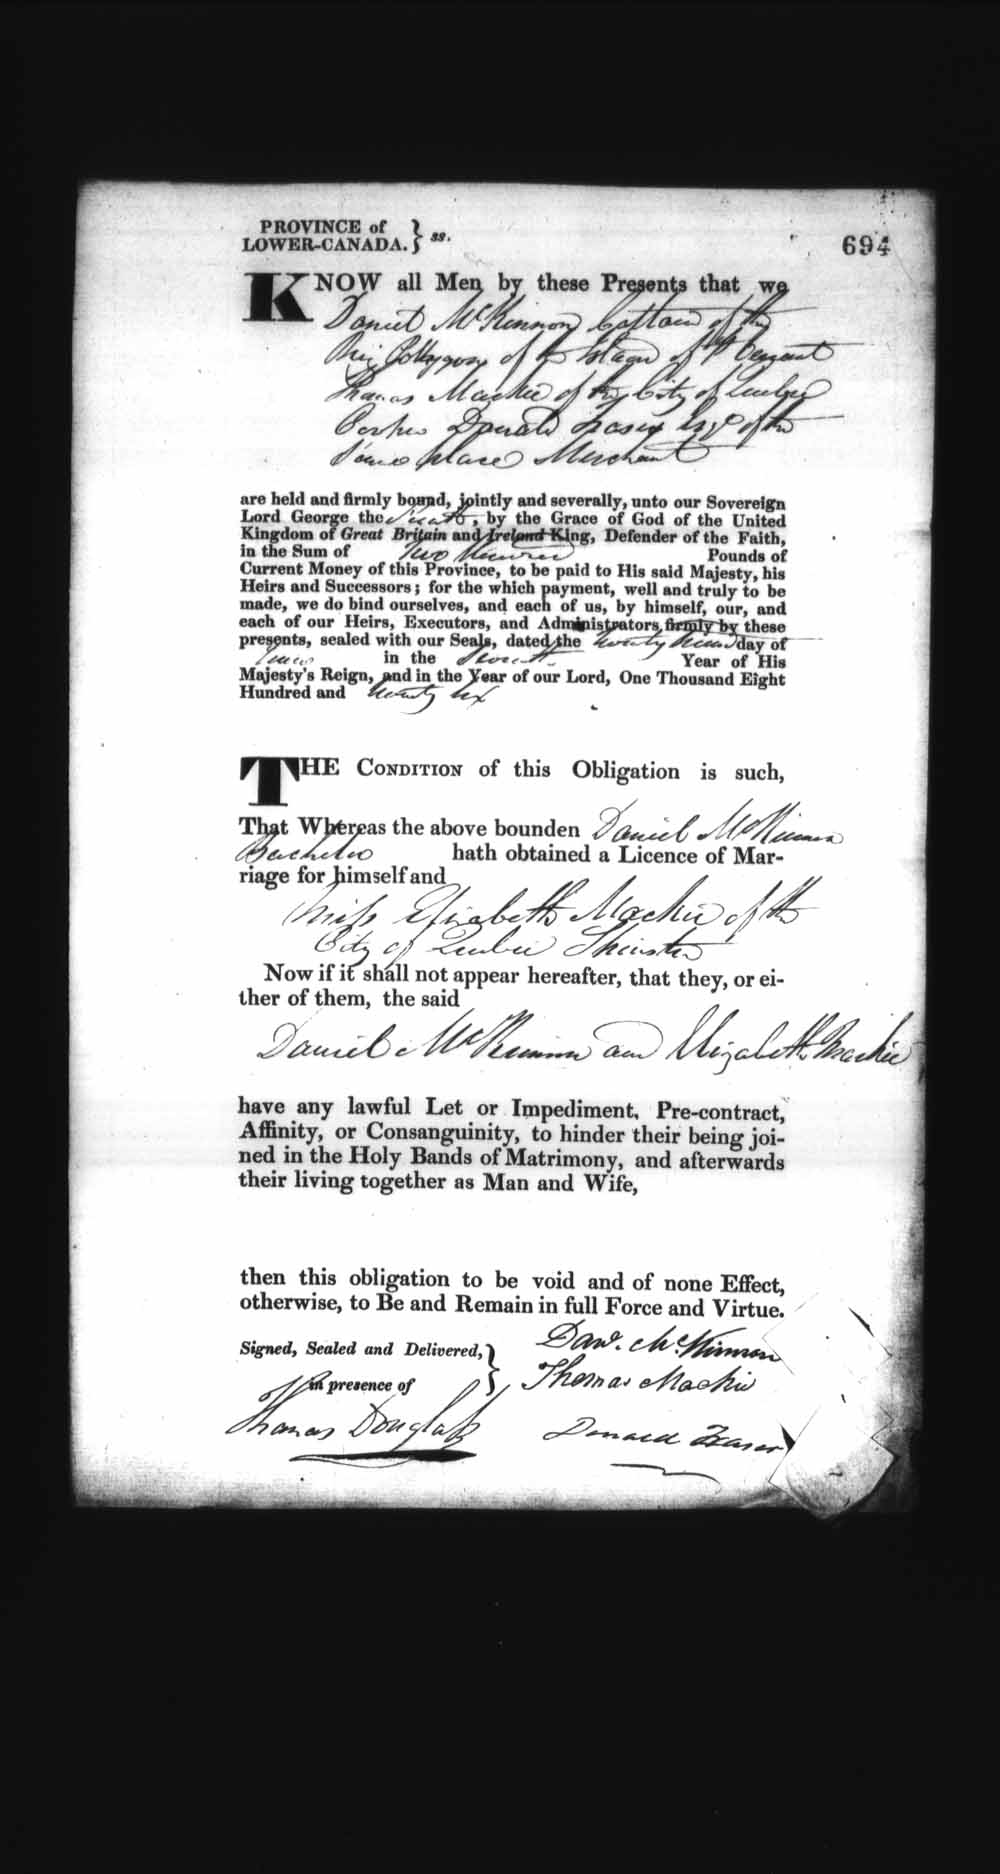 PROVINCE of
LOWER-CANADA. } ss.
694
KNOW all Men by these Presents that we
Daniel McKinnon Captain of the
Brig of the Island of St Vincent
Thomas Mackie of the City of Quebec
Donald Fraser Esqr of the
Same place Merchant
are held and firmly bound, jointly and severally, unto our Sovereign
Lord George the Fourth, by the Grace of God of the United
Kingdom of Great Britain and Ireland King, Defender of the Faith,
in the Sum of Two Hundred Pounds of
Current Money of this Province, to be paid to His said Majesty, his
Heirs and Successors; for the which payment, well and truly to be
made, we do bind ourselves, and each of us, by himself, our, and
each of our Heirs, Executors, and Administrators, firmly by these
presents, sealed with our Seals, dated the twenty day of
June in the Seventh Year of His
Majesty's Reign, and in the Year of our Lord, One Thousand Eight
Hundred and twenty six
THE CONDITION of this Obligation is such,
That Whereas the above bounden Daniel McKinnon
Bachelor hath obtained a Licence of Mar-
riage for himself and
Miss Elizabeth Mackie of the
City of Quebec Spinster
Now if it shall not appear hereafter, that they, or ei-
ther of them, the said
Daniel McKinnon and Elizabeth Mackie
have any lawful Let or Impediment, Pre-contract,
Affinity, or Consanguinity, to hinder their being joi-
ned in the Holy Bands of Matrimony, and afterwards
their living together as Man and Wife,
then this obligation to be void and of none Effect,
otherwise, to Be and Remain in full Force and Virtue.
Signed, Sealed and Delivered, }
in presence of
Danl. McKinnon
Thomas Mackie
Thomas Douglass
Donald Fraser